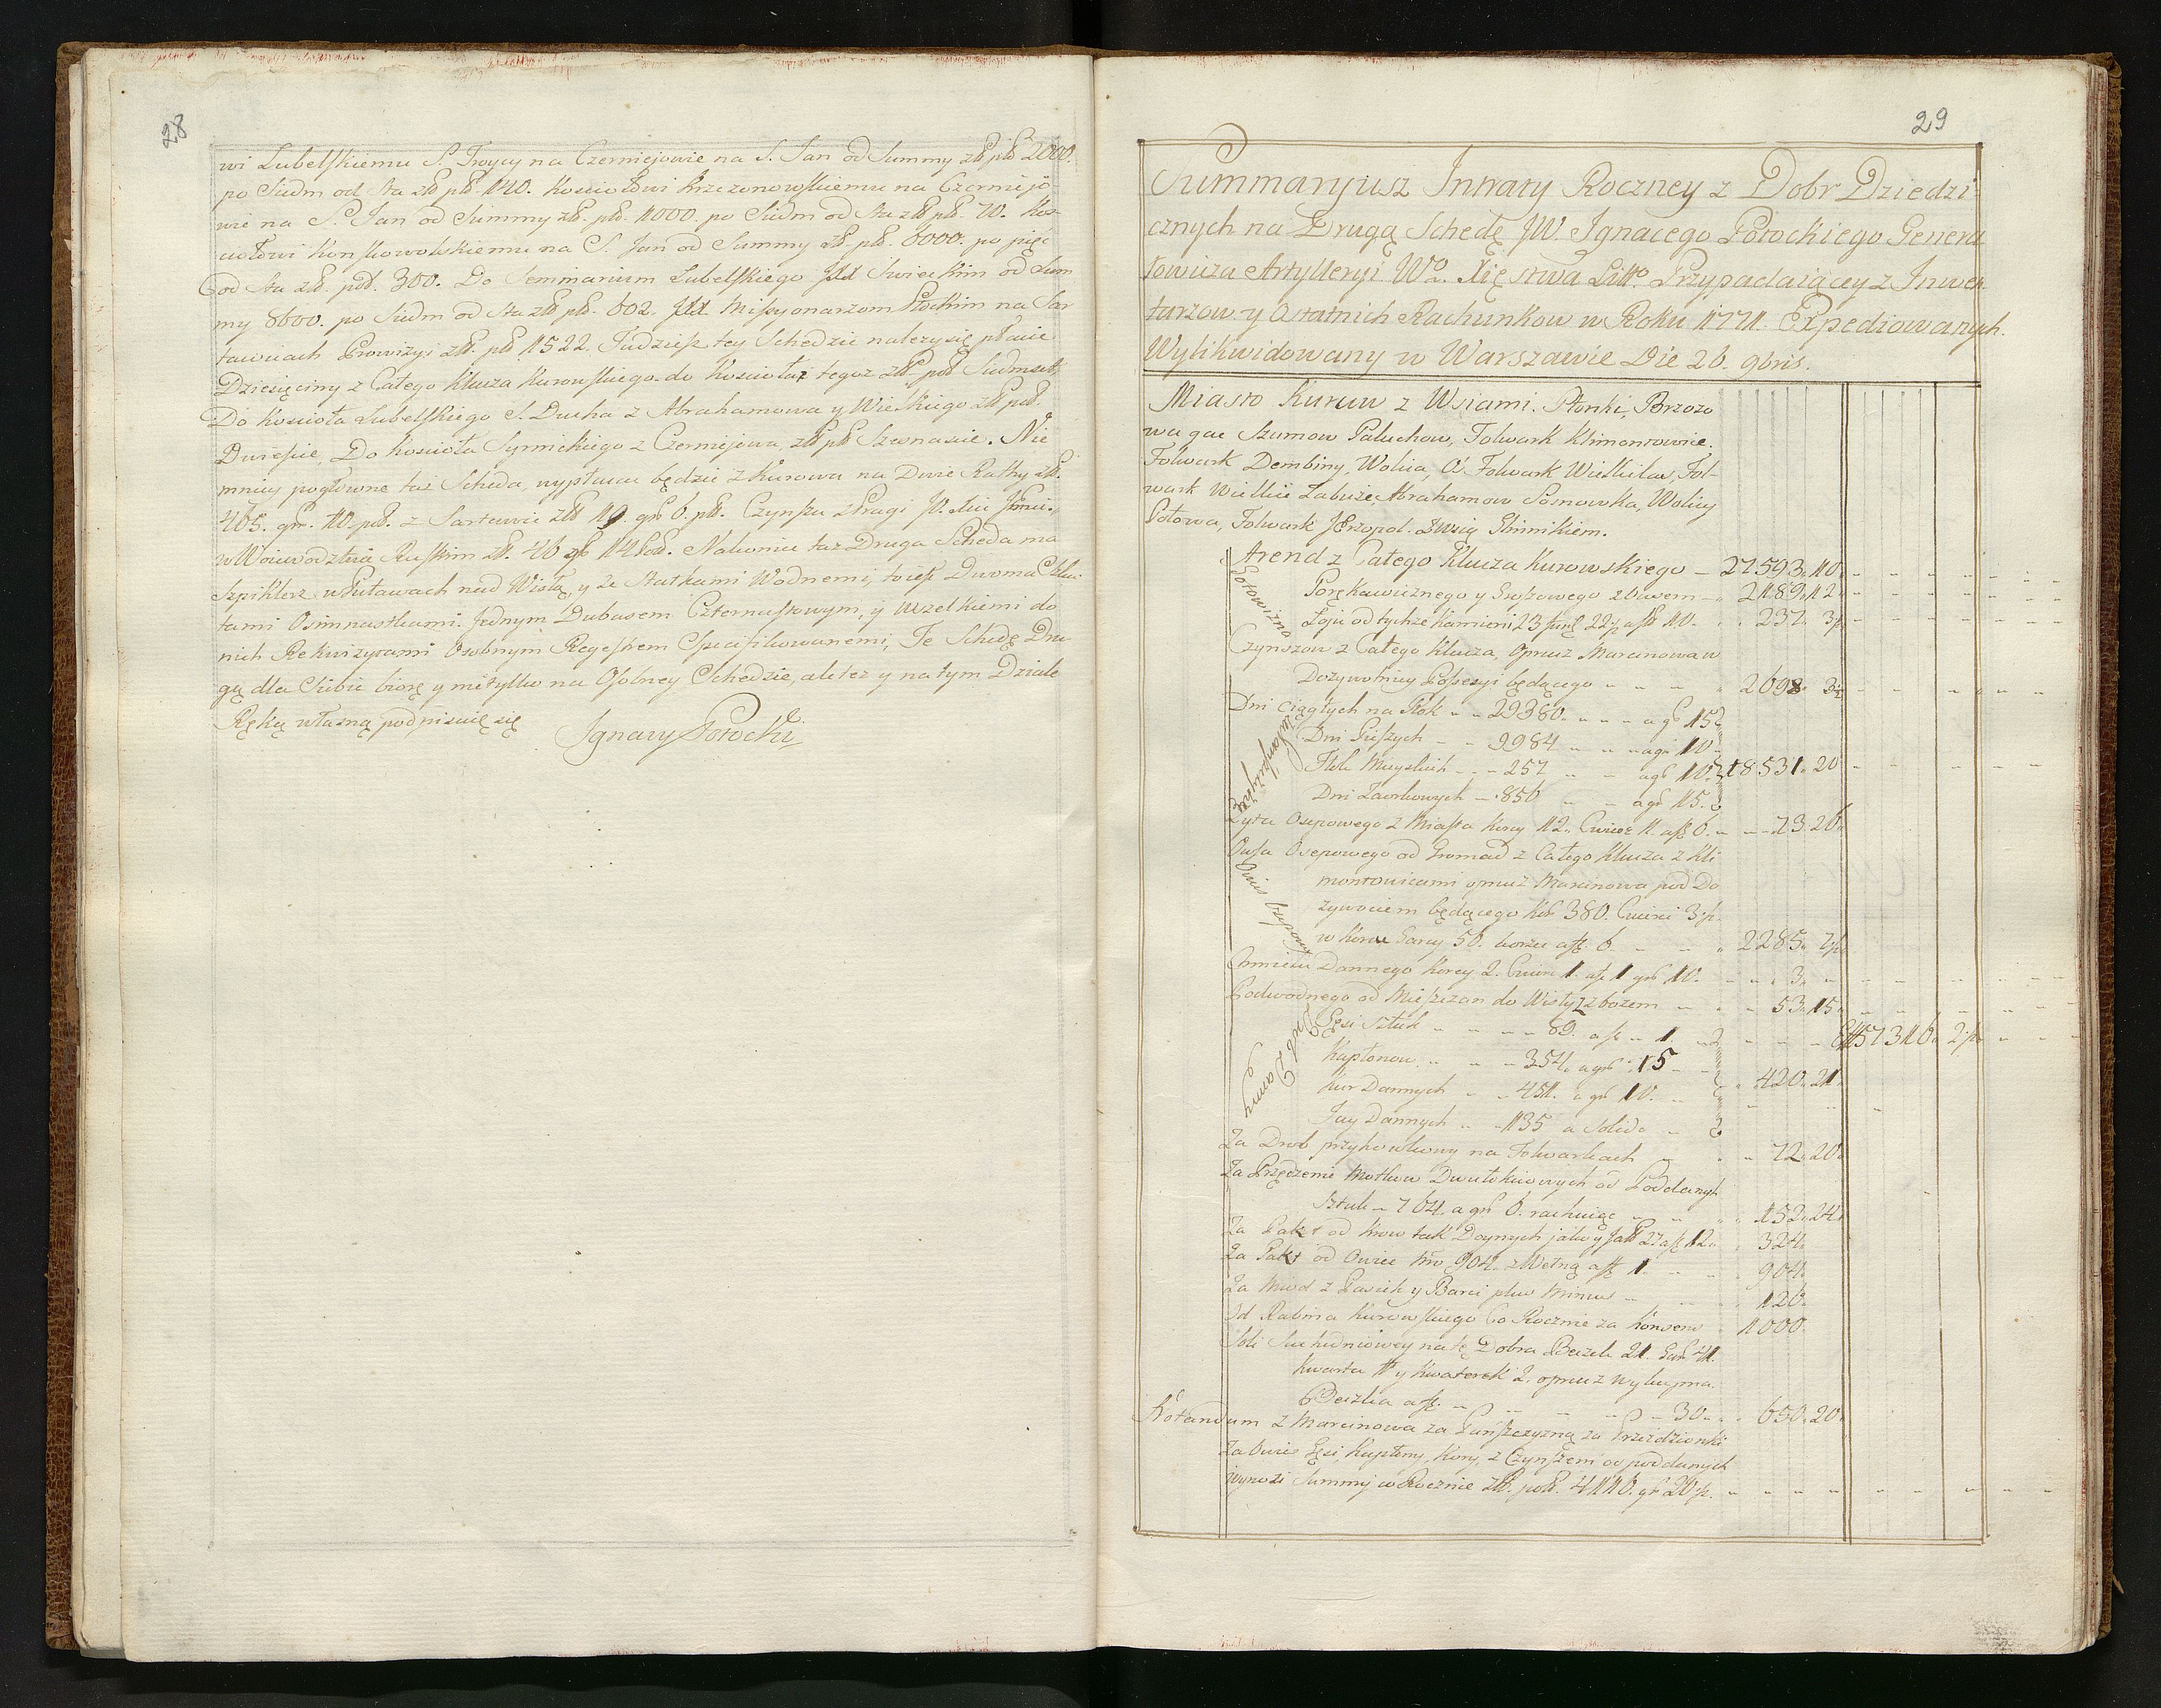 28
wi Lubelskiemu S. Troycy na Czerniejowie na S. Jan od Summy zł. pol. 2000.
po Siedm od sta zł. pol. 140. Kosciołowi Krzczonowskiemu na Czerniejo-
wie na S. Jan od Summy zł. pol. 1000. po Siedm od sta zł. pol. 70. Kos-
ciołowi Konskowolskiemu na S. Jan od Summy zł. pol. 6000. po pięć
od sta zł. pol. 300. Do Seminarium Lubelskiego Swieckim od Sum
my 8600. po Siedm od sta zł. pol. 602. Missyonarzom na Sar
tawicach Prowizyi zł. pol. 1522. Tudziesz tey Schedzie nalezy się płacić
Dziesięciny z Całego Klucza Kurowskiego do Koscioła tegoz zł. pol. Siedmset,
Do Koscioła Lubelskiego S. Ducha z Abrahamowa y Wielkiego zł. pol.
Dwiescie, Do Koscioła z Czerniejowa, zł. pol. Szesnascie. Nie
mniey pogłowne taż Scheda, wypłacać będzie z Kurowa na Dwie Rathy zł.
465. gr. 10. pol. z Sartawic zł. 19. gr. 6. pol. Czynszu z Pragi
w Woiewodztwie Ruskim zł. 46 gr. 14 pol. Nakoniec taz Druga Scheda ma
Szpiklerz w Puławach nad Wisłą, y ze Statkami Wodnemi, to iest Dwoma
tami Osimnastkami. Jednym Dubasem Czternastowym, y wszelkiemi do
nich Rekwizytami Osobnym Regestrem Specifikowanemi, Te Schedę Dru-
gą dla Siebie biorę y nietylko na Osobney Schedzie, ale też y na tym Dziale
Ręką własną podpisuię się
Ignacy Potocki
29
Summaryusz Intraty Roczney z Dobr Dziedzi-
cznych na Drugą Schedę JW. Ignacego Potockiego Genera
łowicza Artylleryi Wo. Xięstwa Litto. Przypadaiącey z Inwen
tarzow y Ostatnich Rachunkow w Roku 1771. Expediowanych.
Wylikwidowany w Warszawie Die 26. 9bris.
Miasto Kurow z Wsiami. Płonki, Brzozo
wa gac Szumow Paluchow, Folwark Klimontowice.
Folwark Dembiny, Wolica, Folwark Fol-
wark Wielkie Łabuże, Abrahamow Sosnowka, Wolicy
Połowa, Folwark
Gotowizna
Arend z Całego Klucza Kurowskiego 27593. 10.
Porękawicznego y 2189. 12.
Łoju od tychże kamieni 23 a zł. 10. 237. 3
Czynszow z Całego Klucza, oprucz Marcinowa w
Dozywotniey Possessyi będącego 2698. 3½
Dni ciągłych na Rok 29380. a gr. 15
Dni Pieszych 9984 a gr. 10
Mieyskich 257 a gr. 10. 18531. 20
Dni Zarobkowych 856 a gr. 15.
Żyta Osepowego z Miasta Korcy 12. Cwierć 1. a zł. 6. 73. 26.
Owies Osepowy
Owsa Osepowego od Gromad z Całego Klucza z Kli
montowicami oprucz Marcinowa pod Do
zywociem będącego kor. 380. Cwierci 3
w Korcu Garcy 50. korzec a zł. 6. 2285. 7½
Chmielu Dannego Korcy 2. Cwierć 1. a zł. 1 gr. 10. 3.
Podwodnego od Mieszczan do Wisły z zbozem 53. 15.
Drob Danny
Gęsi Sztuk 89. a zł. 1 57316. 2½
Kapłonow 354. a gr. 15
Kur Dannych 451. a gr. 10. 420. 21.
Jay Dannych 1135 a Solid.
Za Drob przychowkowy na Folwarkach 72. 20.
Za Przędzenie Motkow Dwułokciowych od Poddanych
Sztuk 764. a gr. 6. rachuiąc 152. 24.
Za Pakt od krow tak Doynych 27 a zł. 12 324.
Za Pakt od Owiec 904. z Wełną a zł. 1 904.
Za Miod z Pasiek y Barci plus Minus 126.
Od Rabina Kurowskiego Co Rocznie za Konsens 1000.
Soli Suchedniowey na tę Dobra Beczek 21. Gar. 41.
kwarta 1 y Kwaterek 2. oprucz
Beczka a zł. 30. 650. 20.
Notandum z Marcinowa za Panszczyznę za
za Owies Gęsi, Kapłony, Kury, z Czynszem od poddanych
wynosi Summy coRocznie zł. pol. 4116. gr. 20